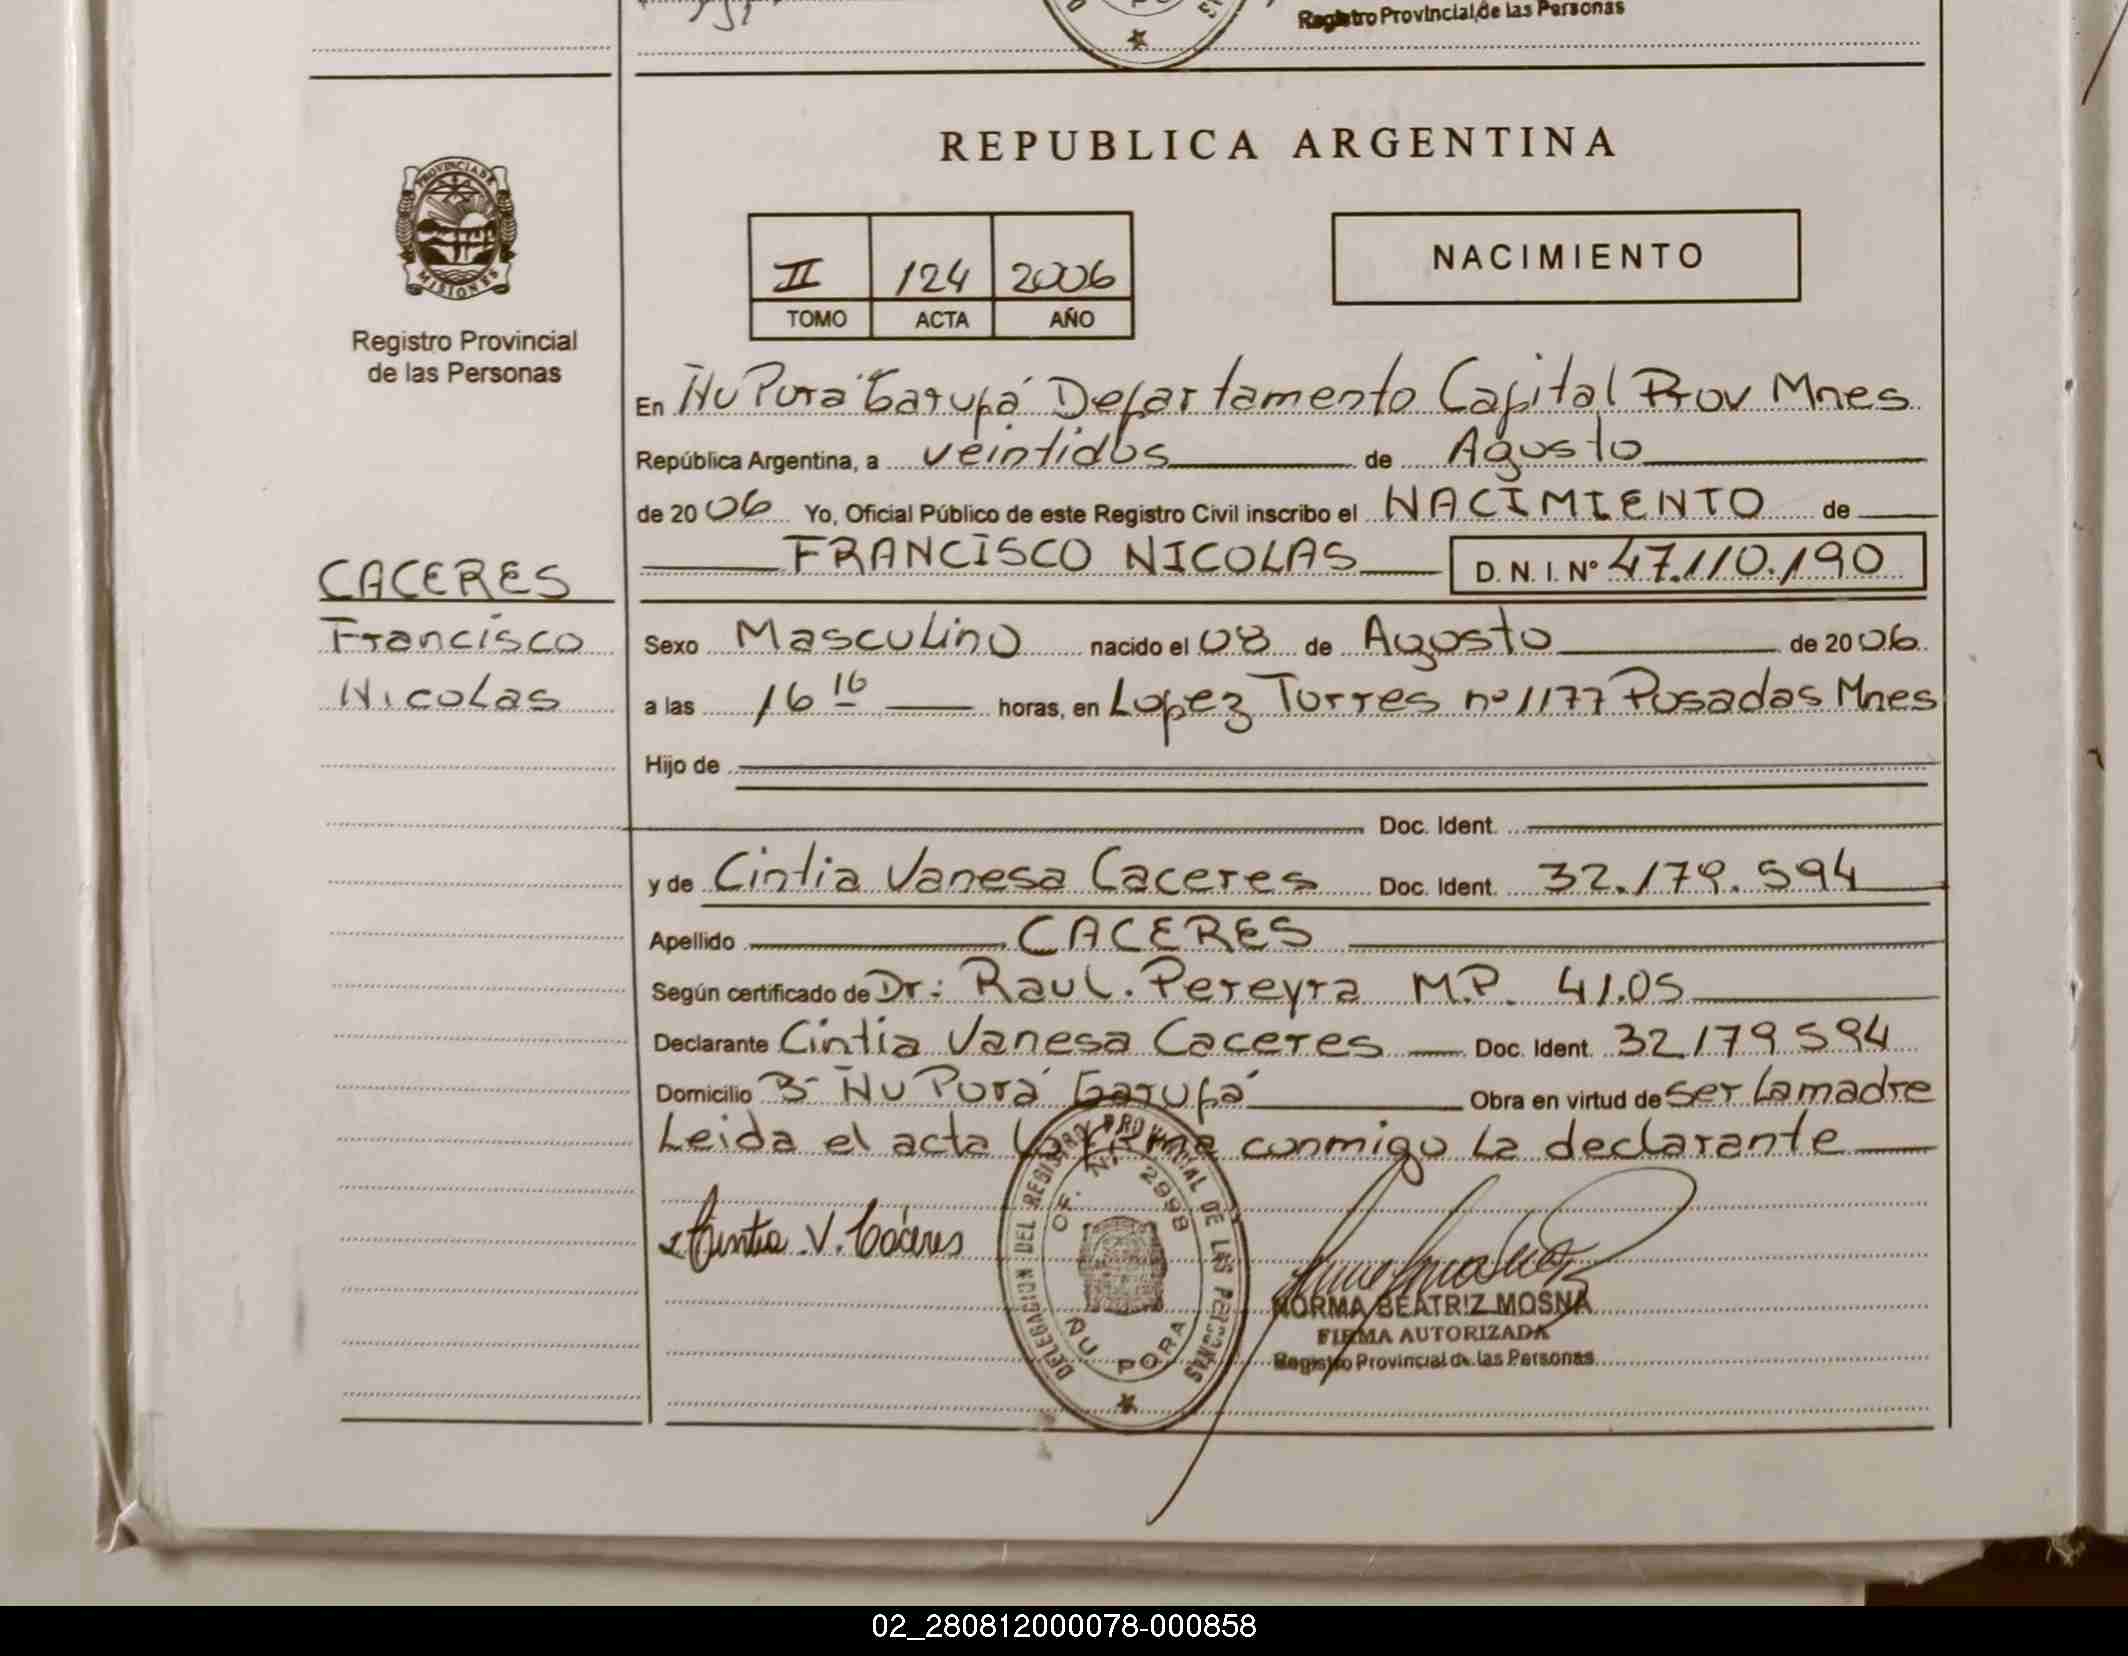 Registro Provincial de las Personas
REPUBLICA ARGENTINA
PROVINCIA DE
MISIONES
Registro Provincial
de las Personas
II 124 2006
TOMO ACTA AÑO
NACIMIENTO
En Ñu Porá Garupá Departamento Capital Prov Mnes
República Argentina, a veintidos de Agosto
de 2006 Yo, Oficial Público de este Registro Civil inscribo el NACIMIENTO de
FRANCISCO NICOLAS D. N. I. Nº 47.110.190
CACERES
Francisco
Nicolas
Sexo Masculino nacido el 08 de Agosto de 2006
a las 16 16 horas, en Lopez Torres nº 1177 Posadas Mnes
Hijo de
Doc. Ident.
y de Cintia Vanesa Caceres Doc. Ident. 32.179.594
Apellido CACERES
Según certificado de Dr: Raul. Pereyra M.P. 41.05
Declarante Cintia Vanesa Caceres Doc. Ident. 32179594
Domicilio Bº Ñu Porá Garupá Obra en virtud de ser la madre
Leida el acta la firma conmigo la declarante
Cintia V. Cáceres
DELEGACION DEL REGISTRO PROVINCIAL DE LAS PERSONAS
OF. N. 2998
ÑU PORA
NORMA BEATRIZ MOSNA
FIRMA AUTORIZADA
Registro Provincial de las Personas
02_280812000078-000858